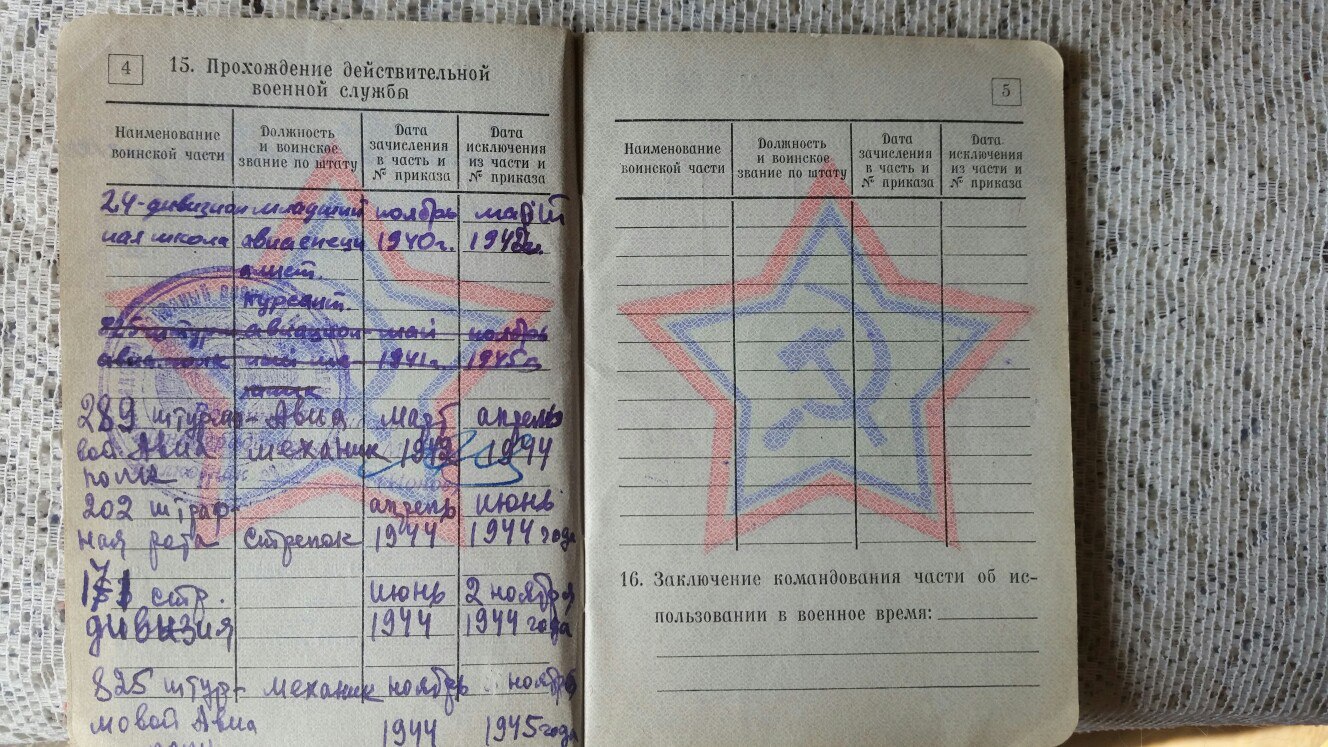 4
15. Прохождение действительной
военной службы
Наименование воинской части
Должность и воинское звание по штату
Дата зачисления в часть и № приказа
Дата исключения из части и № приказа
24-дивизион младший ноябрь
ная школа авиаспеци 1940г. 1942г.
алист.
курсант.
авиацион май ноябрь
1941г. 1945г.
289 штурмо- Авиа март апрель
вой Авиа механик 1944
полк
202 штраф- апрель июнь
ная рота стрелок 1944 1944 года
171 стр. июнь 2 ноября
дивизия 1944 1944 года
825 штур- механик ноябрь ноябрь
мовой Авиа 1944 1945 года
5
Наименование воинской части
Должность и воинское звание по штату
Дата зачисления в часть и № приказа
Дата исключения из части и № приказа
16. Заключение командования части об ис-
пользовании в военное время: